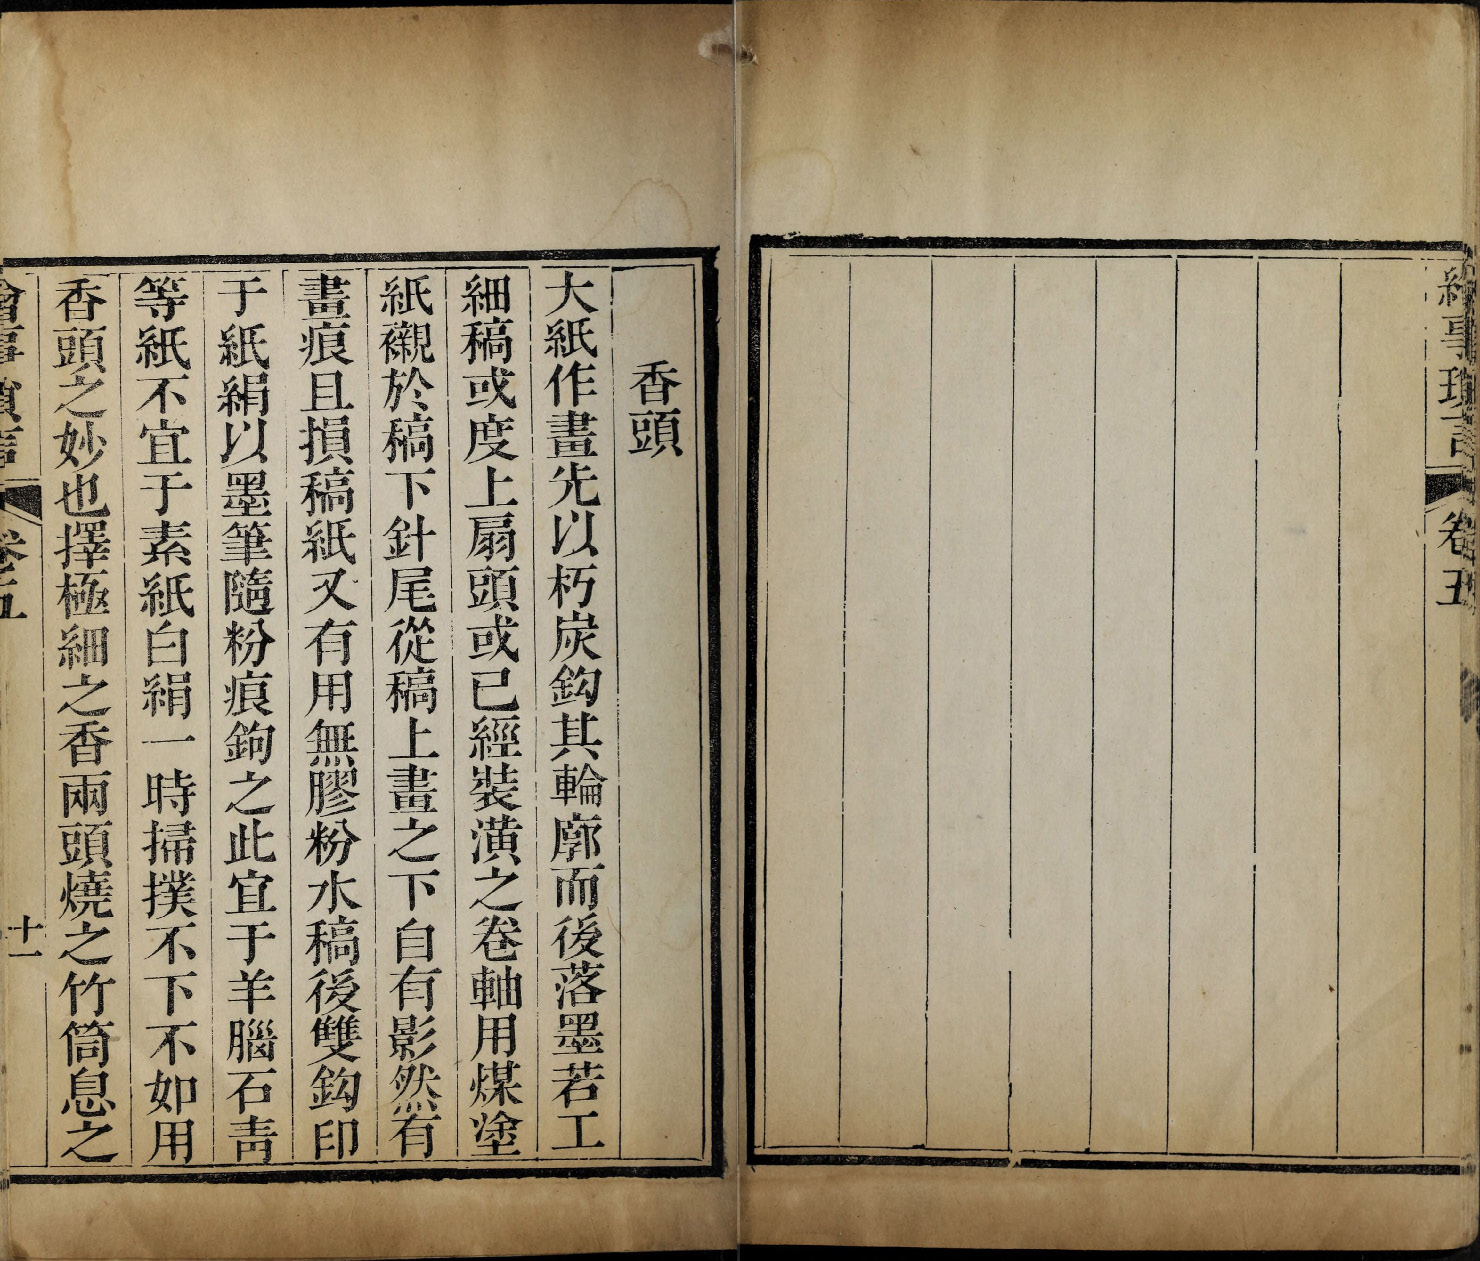 繪事瑣言
卷五
香頭
大紙作畫先以朽炭鈎其輪廓而後落墨若工
細稿或度上扇頭或已經裝潢之卷軸用煤塗
紙襯於稿下針尾從稿上畫之下自有影然有
畫痕且損稿紙又有用無膠粉水稿後雙鈎印
于紙絹以墨筆隨粉痕鉤之此宜于羊腦石靑
等紙不宜于素紙白絹一時掃撲不下不如用
香頭之妙也擇極細之香兩頭燒之竹筒息之
繪事瑣言
卷五
十一